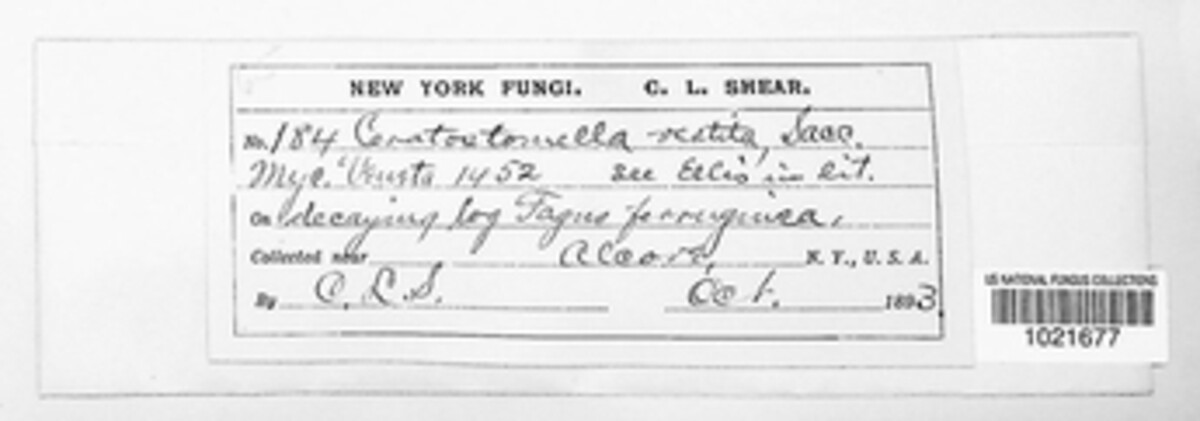 NEW YORK FUNGI. C. L. SHEAR.
No. 184 Ceratostomella vestita, Sacc.
Myc. Veneta 1452 see Ellis in lit.
On decaying log Fagus ferruginea.
Collected near Alcove, N. Y., U. S. A.
By C. L. S. Oct. 1893.
US NATIONAL FUNGUS COLLECTIONS
1021677